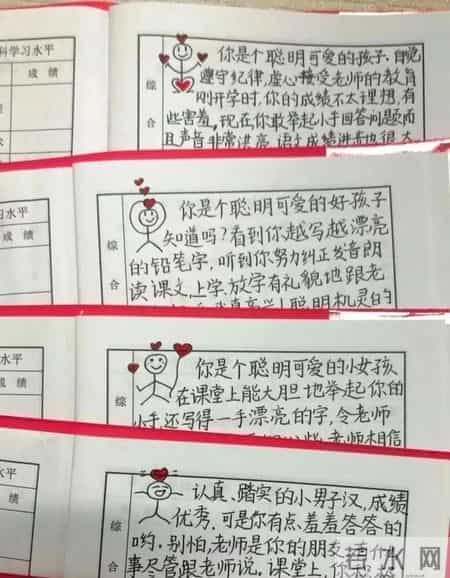 科学习水平
成 绩
综
合
你是个聪明可爱的孩子,自觉
遵守纪律,虚心接受老师的教育
刚开学时,你的成绩不太理想,有
些害羞,现在你敢举起小手回答问题而
且声音非常洪亮,语文成绩进步也很大
习水平
成 绩
综
合
你是个聪明可爱的好孩子
知道吗?看到你越写越漂亮
的铅笔字,听到你努力纠正发音朗
读课文,上学,放学有礼貌地跟老
聪明机灵的
水平
成 绩
综
你是个聪明可爱的小女孩
在课堂上能大胆地举起你的
小手,还写得一手漂亮的字,令老师
老师相信
水平
绩
综
合
认真、踏实的小男子汉,成绩
优秀,可是你有点羞羞答答的
哟,别怕,老师是你的朋友,有什
事尽管跟老师说,课堂上,你
水网